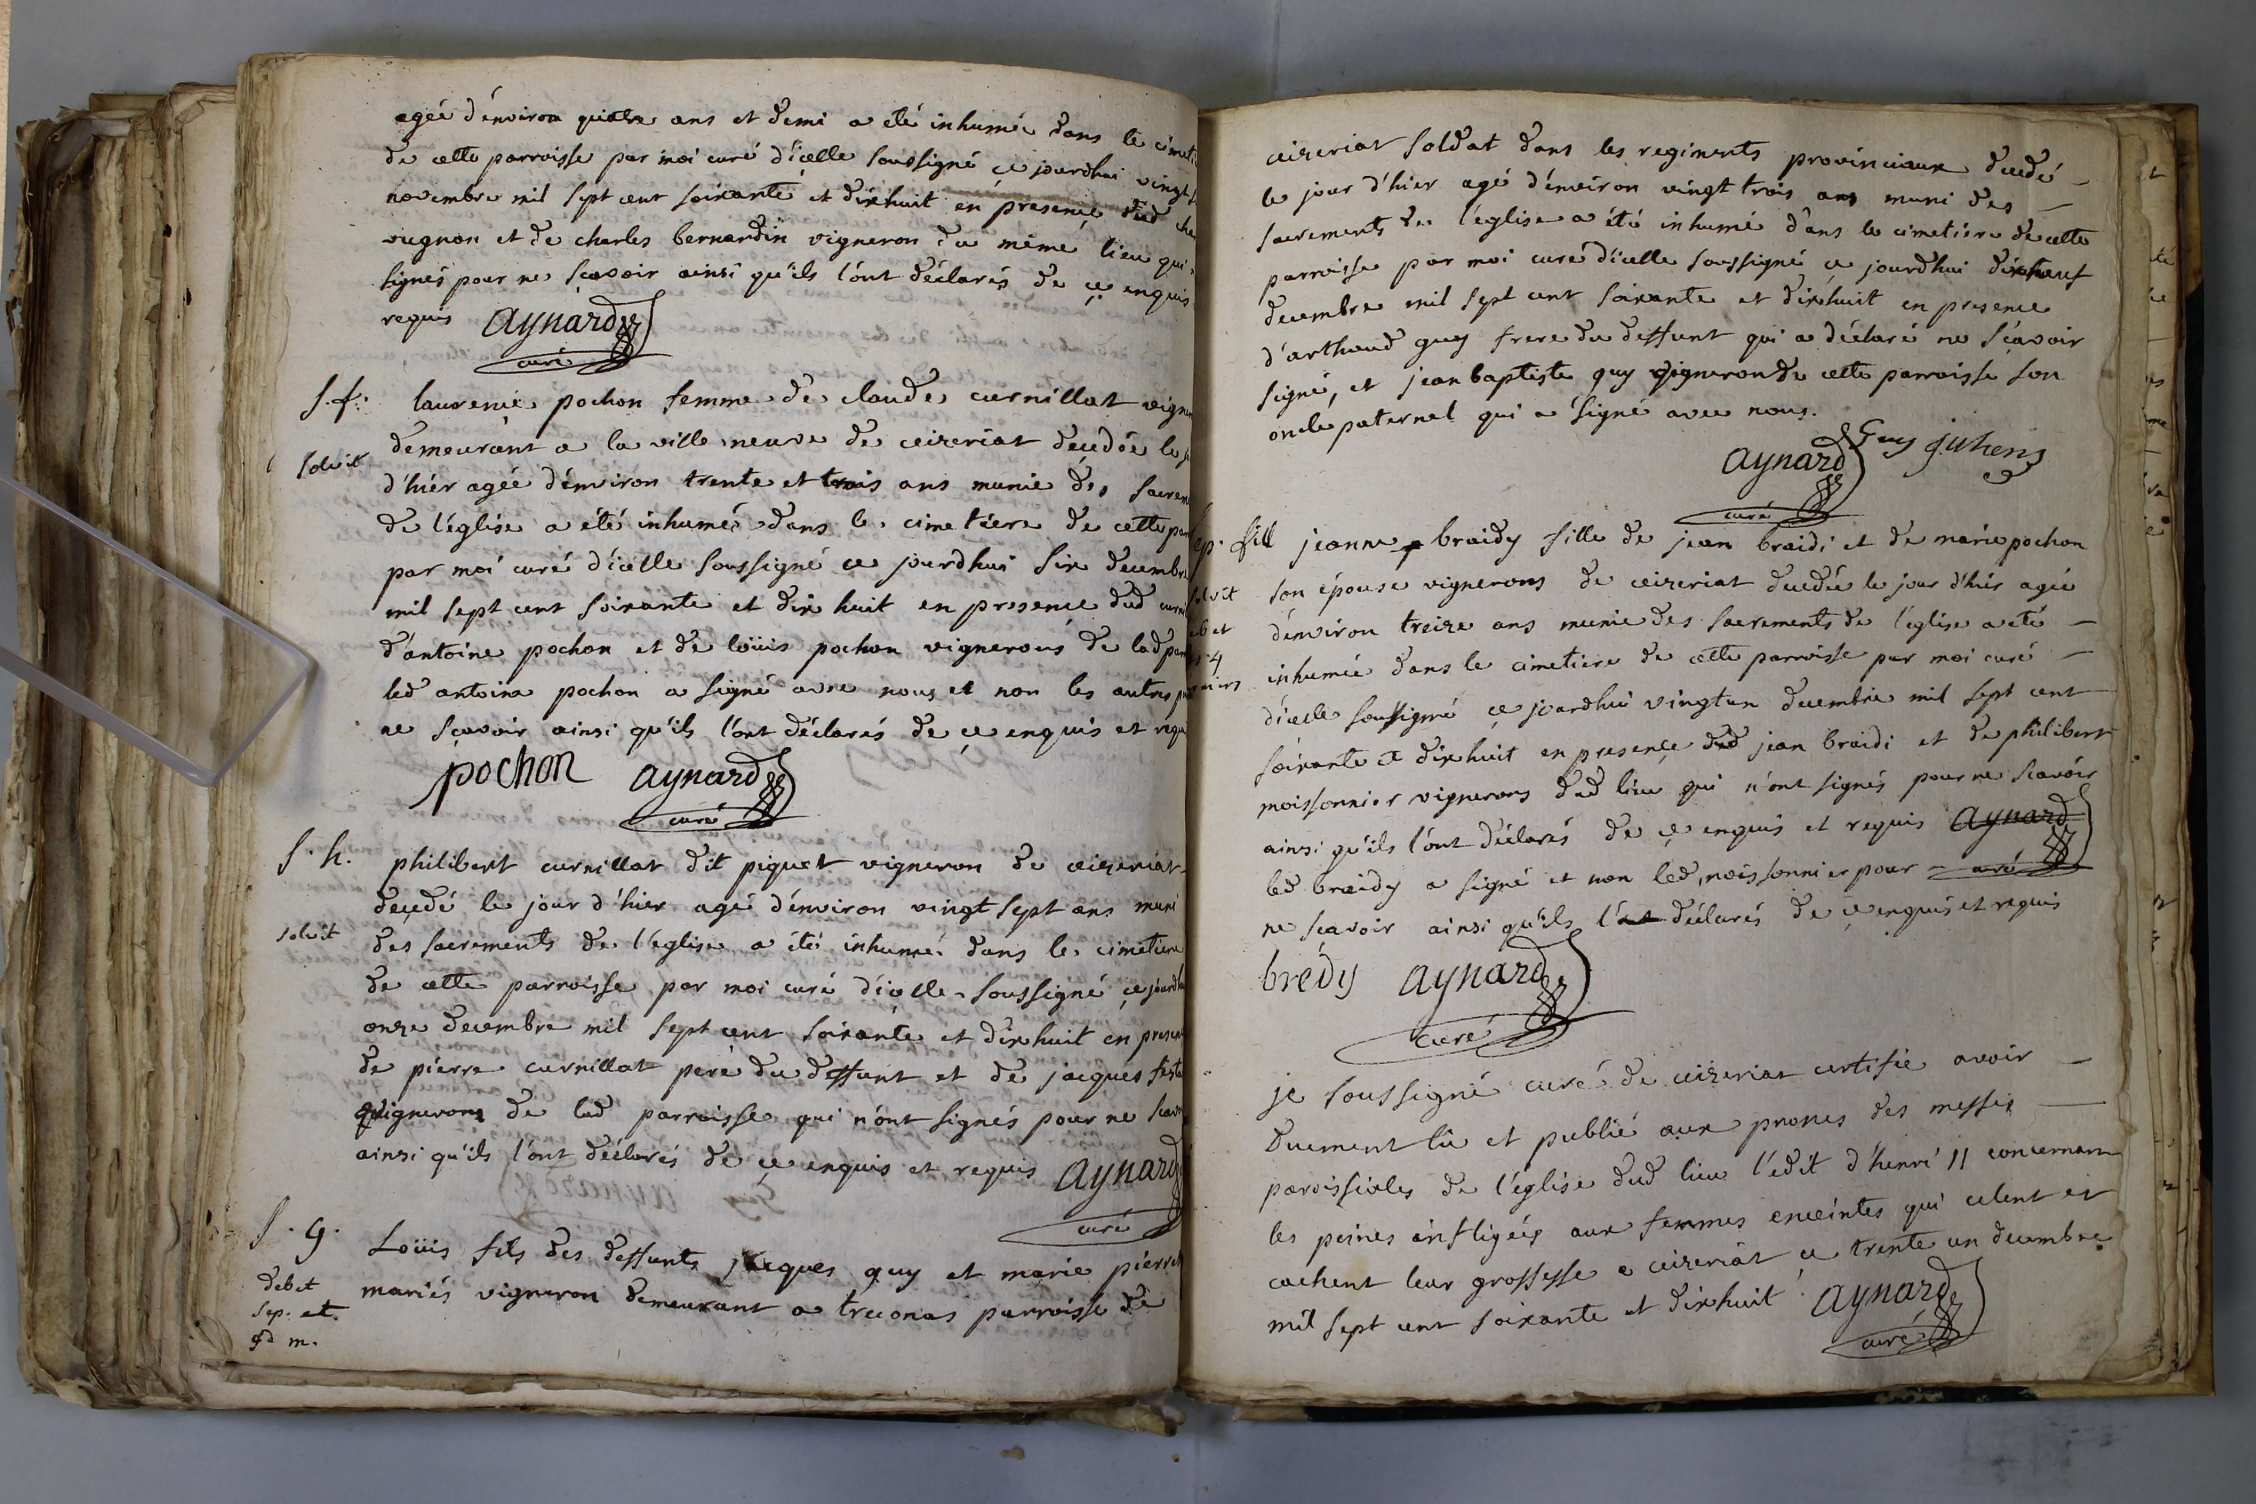 agée d'environ quatre ans et demi a été inhumée dans le cimeti
de cette parroisse par moi curé d'icelle soussigné ce jourdhui vingt
novembre mil sept cent soixante et dixhuit en presence dud
vugnon et de charles bernardin vigneron du même lieu qui
signés pour ne sçavoir ainsi qu'ils l'ont déclarés de ce enquis
requis aynard
curé
s. f. laurence pochon femme de claude curnillat vigner
demeurant a la ville neuve de ceizeriat decedée le j
solvit
d'hier agée d'environ trente et trois ans munie des sacrem
de l'église a été inhumée dans le cimetiere de cette par
par moi curé d'icelle soussigné ce jourdhui six decembre
mil sept cent soixante et dix huit en presence dud curni
d'antoine pochon et de loüis pochon vignerons de lad par
led antoine pochon a signé avec nous et non les autres p
ne sçavoir ainsi qu'ils l'ont déclarés de ce enquis et requ
pochon aynard
curé
s. h. philibert curnillat dit piquet vigneron de ceizeriat
decedé le jour d'hier agé d'environ vingt sept ans muni
solvit
des sacrements de l'église a été inhumé dans le cimetiere
de cette parroisse par moi curé d'icelle soussigné ce jourdh
onze decembre mil sept cent soixante et dixhuit en presen
de pierre curnillat pere du deffunt et de jacques
vignerons de lad parroisse qui n'ont signés pour ne scav
ainsi qu'ils l'ont déclarés de ce enquis et requis aynard
curé
s. g. Loüis fils des deffunts jacques guy et marie pierre
debet
mariés vigneron demeurant a treconas parroisse de
sep. et
gd m.
ceizeriat soldat dans les regiments provinciaux decedé
le jour d'hier agé d'environ vingt trois ans muni des
sacrements de l'église a été inhumé dans le cimetiére de cette
parroisse par moi curé d'icelle soussigné ce jourdhui dixneuf
decembre mil sept cent soixante et dixhuit en presence
d'arthaud guy frere du deffunt qui a déclaré ne sçavoir
signé, et jean baptiste guy vigneron de cette parroisse son
oncle paternel qui a signé avec nous.
aynard Guy
curé
sep. fill jeanne braidy fille de jean braidi et de marie pochon
solvit son épouse vignerons de ceizeriat decedée le jour d'hier agée
d'environ treize ans munie des sacrements de l'église a été
inhumée dans le cimetiere de cette parroisse par moi curé
d'icelle soussigné ce jourdhui vingtun decembre mil sept cent
soixante et dixhuit en presence dud jean braidi et de philibert
moissonnier vignerons dud lieu qui n'ont signés pour ne scavoir
ainsi qu'ils l'ont déclarés de ce enquis et requis aynard
led braidy a signé et non led moissonnier pour curé
ne scavoir ainsi qu'ils l'ont déclarés de ce enquis et requis
brédy aynard
curé
je soussigné curé de ceizeriat certifie avoir
duement lu et publié aux prones des messes
paroissiales de l'église dud lieu l'édit d'henri II concernant
les peines infligées aux femmes enceintes qui celent et
cachent leur grossesse a ceizeriat ce trente un decembre
mil sept cent soixante et dixhuit aynard
curé